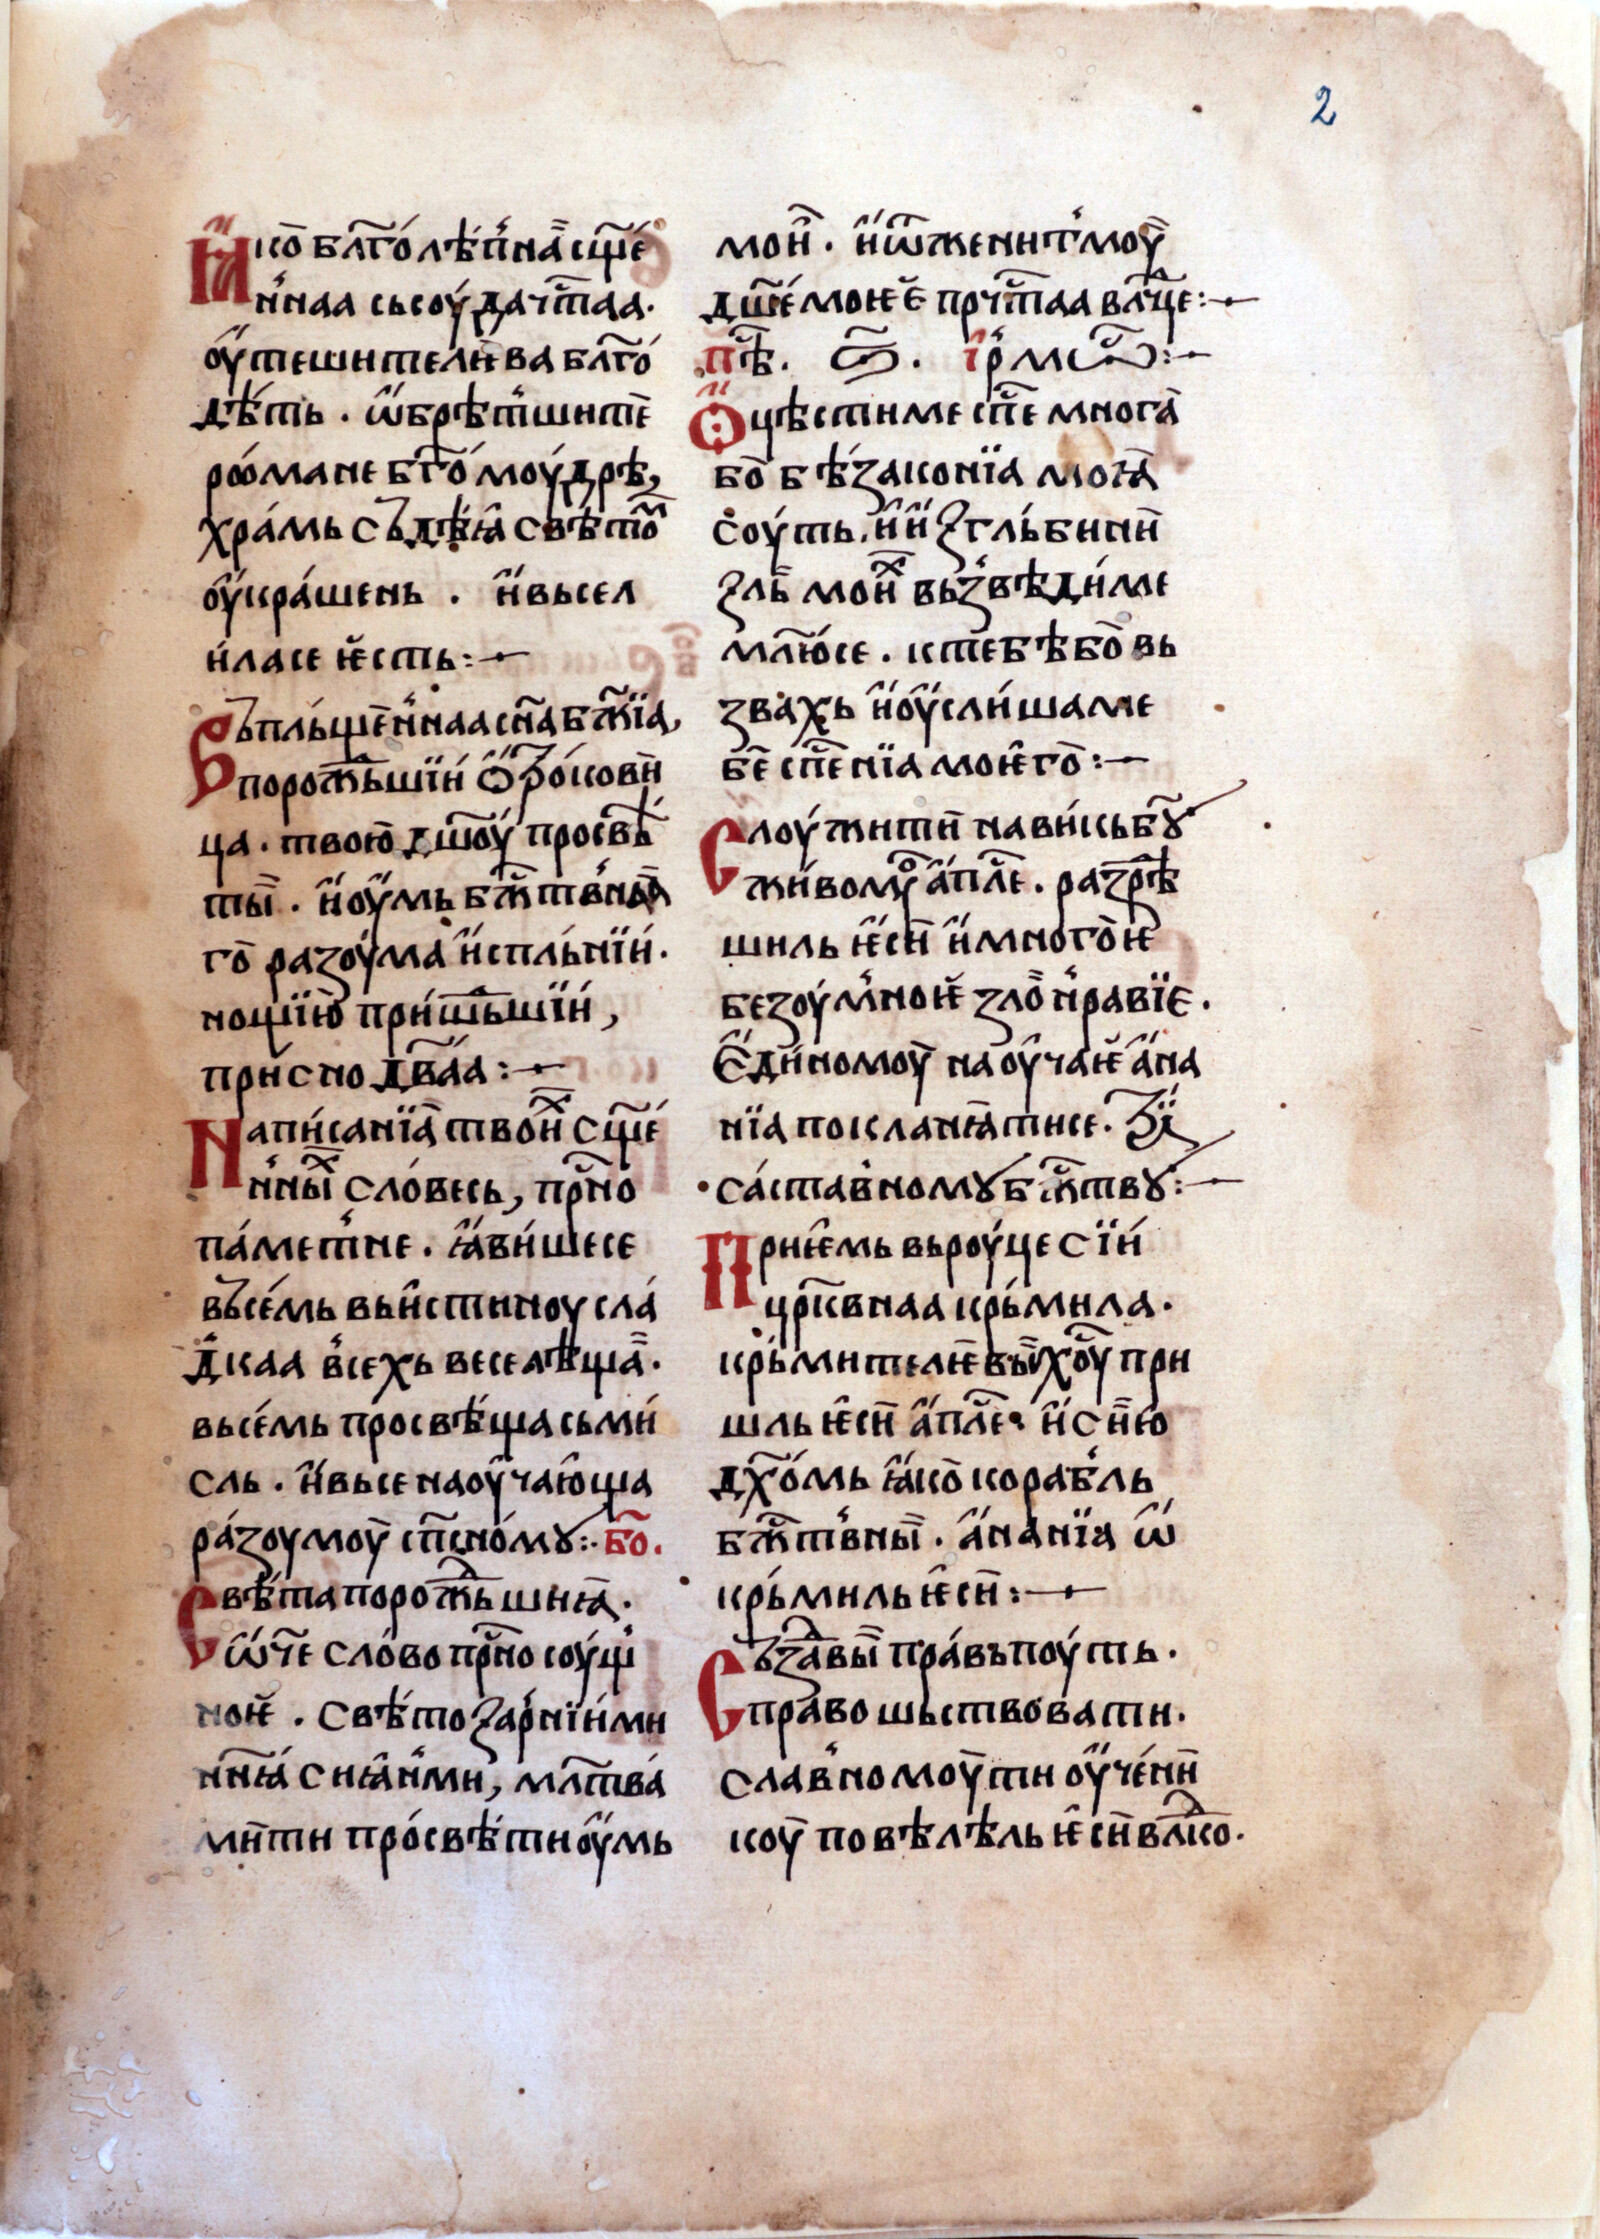 2
Ꙗ҆ко̀ бл҃го́лѣ́п꙽наа̀ сщ҃е́
н꙽наа сьсоу́да чт҃таа.
оу҆тешителѥ́ва бл҃го
дѣ́ть . ѡ҆брѣт꙽шитѐ
рѡ́мане бг҃о́моу́дрѣ,
хра́мь съдѣꙗ̀ свѣ́то̑ⷨ
оу҆кра́шень . и҆ вьсел
и́ла се ѥ҆сть:~
Въпль́щен꙽наа сн҃а бж҃їа,
порожⷣьшїи́ ѻ҆трокови́
ца . твою̀ дш҃оу́ просвѣ́
ты̀ . и҆ оу҆мь бжⷭ҇твна́а
го̀ разоу́ма и҆спль́нїи́.
нощїю̀ при́шⷣьшїи́,
при́сно дв҃аа:~
Написанїа̀ твои́ⷯ сщ҃е́
н꙽ны̀ⷯ сло́весь, прⷭ҇но
па́мет꙽не . ꙗ҆ви́шесе
въсе́мь вьи҆стиноу сла́
д꙽каа в꙽сехь веселѣща̀.
вьсе́мь просвѣ́ща сьми́
сль . и҆ вьсе наоу҆чаю́ща
ра́зоумоу̀ сп҃сно́мꙋ:· бо̑.
Свѣ́та порожⷣьшиꙗ̀.
ѿч҃е сло́во прⷭ҇но соу́щ꙽
ноѥ̀ . свѣ́тозар꙽нїи́ми
нн҃ꙗ сиꙗ҆н꙽ми, млт҃ва́
мѝти про́свѣ́ти оу҆мь
мои̑ . и҆ ѿжени т꙽моу̀
дш҃е́ моѥѐ прчⷭ҇таа влⷣце:~
пѣⷭ҇. ѕ҃. і҆рмоⷭ҇:~
Ѻ҆цѣсти ме сп҃се многа̀
бо̀ бѣ́законїа моꙗ̀
соу́ть, и҆ и҆з гль́бини̑
зль̀ мои̑ⷯ вьз꙽вѣди́ ме
мл҃ю́се . к тебѣ бо̀ вь
звахь и҆ оу҆сли́ша ме
бе̑ сп҃се́нїа моѥго̀:~
Слоу́жити̑ нави́кь б҃ꙋ
жи́вомꙋ҆ а҆пⷭ҇ле . разрⷣѣ
шиль ѥ҆си̑ и҆ многоѥ̀
безоу́м꙽ноѥ зло̀н꙽равїѥ.
Е҆ди́номоу̀ наоу҆чаѥ̀ а҆на
нїа покланꙗ́тисе . трⷪ҇и
са́став꙽номꙋ бжⷭ҇твꙋ:~
Приѥ́мь вьроу́це сїи́
црⷦ҇ьвнаа крь́мила.
крь́мителѥ̀ вьи҆ хоⷭ҇у при
шль ѥ҆си̑ а҆пⷭ҇ле . и҆ с н҃ю
дх҃о́мь ꙗ҆ко̀ кора́бль
бжⷭ҇тв꙽ны̀ . а҆нанїа ѡ҆
крь́миль ѥ҆си̑:~
Създавы̀ пра́въ поу́ть.
право шьствовати.
сла́в꙽номоу̀ ти оу҆че́ни̑
коу̀ повѣлѣль ѥ҆си̑ влⷣко.